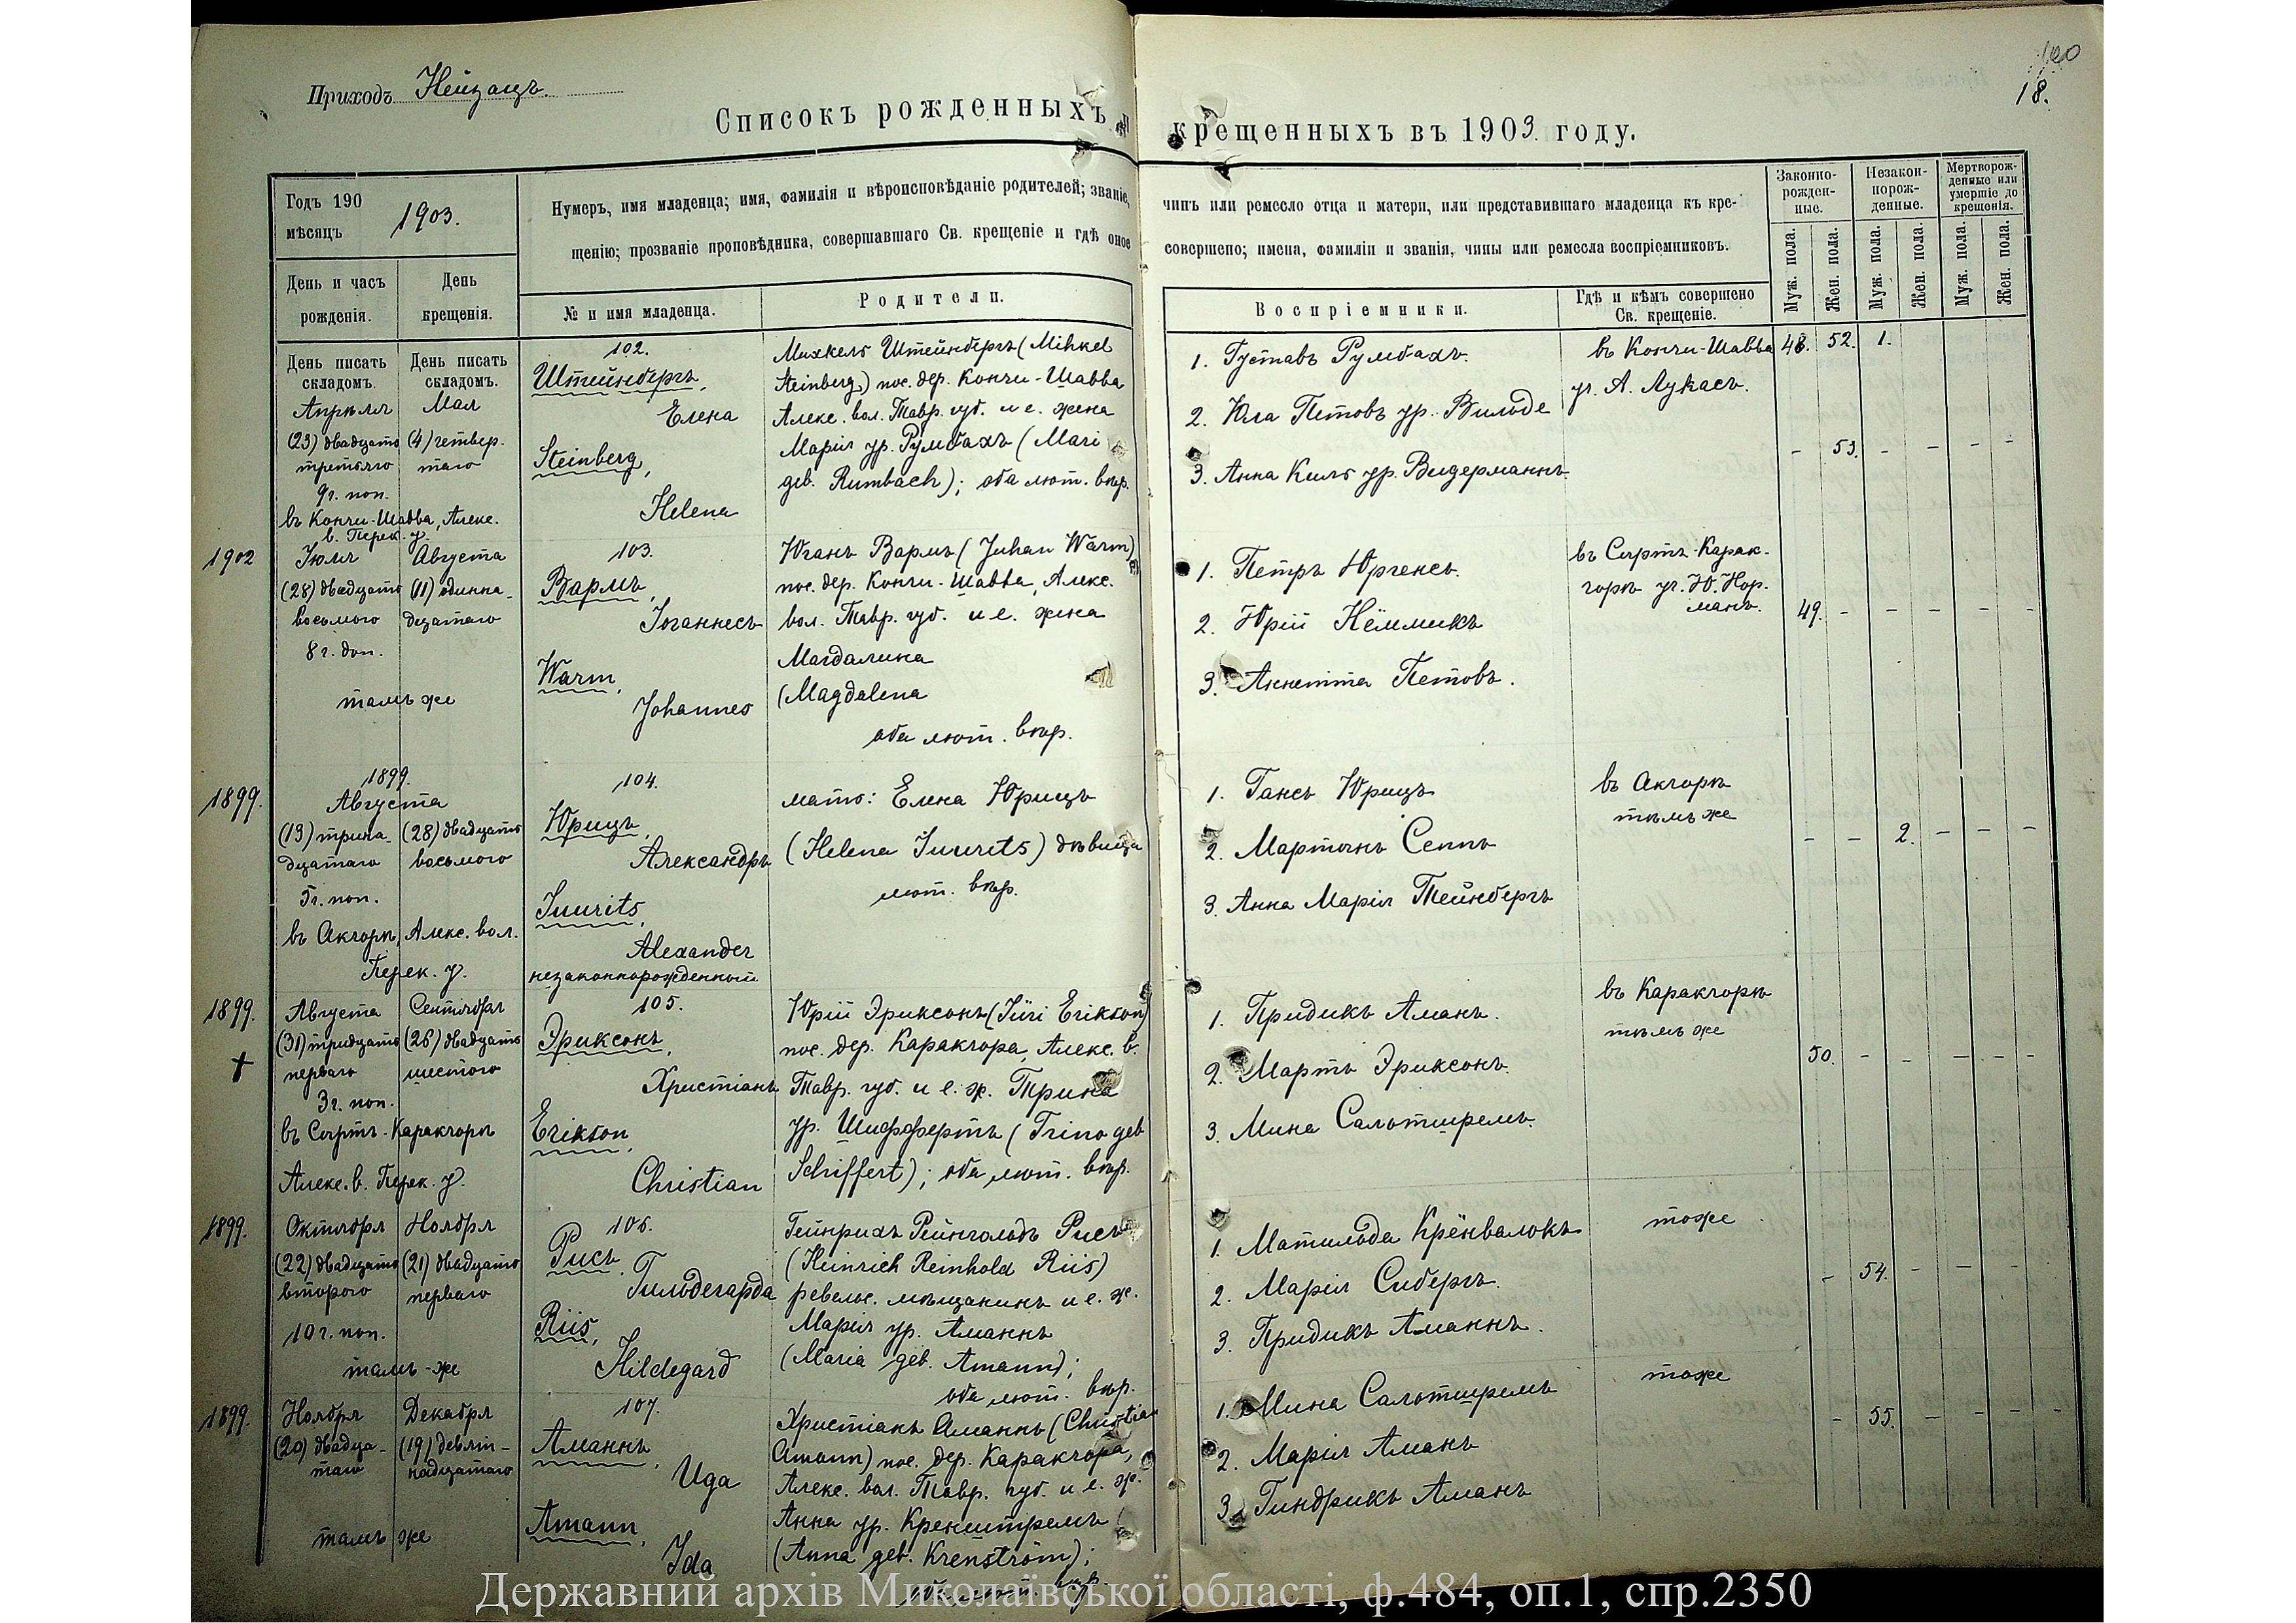 Приходъ Нейзацъ.
100
18.
Списокъ рожденныхъ и крещенныхъ въ 1903 году.
Годъ 190 1903.
мѣсяцъ
Нумеръ, имя младенца; имя, фамилія и вѣроисповѣданіе родителей; званіе, чинъ или ремесло отца и матери, или представившаго младенца къ кре-
щенію; прозваніе проповѣдника, совершавшаго Св. крещеніе и гдѣ оное совершено; имена, фамиліи и званія, чины или ремесла воспріемниковъ.
Законно-
рожден-
ные.
Незакон-
норож-
денные.
Мертворож-
денные или
умершіе до
крещенія.
Муж. пола.
Жен. пола.
Муж. пола.
Жен. пола.
Муж. пола.
Жен. пола.
День и часъ
рожденія.
День
крещенія.
№ и имя младенца.
Родители.
Воспріемники.
Гдѣ и кѣмъ совершено
Св. крещеніе.
День писать
складомъ.
День писать
складомъ.
Апрѣля
(23) двадцать
третьяго
9 г. поп.
въ Кончи-Шавва, Алекс.
в. Перек. у.
Мая
(4) четвер.
таго
102.
Штейнбергъ,
Елена
Steinberg,
Helena
Михкель Штейнбергъ (Mihkel
Steinberg) пос. дер. Кончи-Шавва
Алекс. вол. Тавр. губ. и е. жена
Марія ур. Румбахъ (Mari
geb. Rumbach); оба лют. вѣр.
1. Густавъ Румбахъ.
2. Юла Петовъ ур. Вильде
3. Анна Киль ур. Видерманнъ.
въ Кончи-Шавва
уч. А. Лукасъ.
48. 52. 1.
- 53. - - - -
1902
Іюля
(28) двадцать
восьмого
8 г. доп.
тамъ же
Августа
(11) одинна-
дцатаго
103.
Вармъ,
Іоганнесъ
Warm,
Johannes
Юганъ Вармъ (Juhan Warm)
пос. дер. Кончи-Шавва, Алекс.
вол. Тавр. губ. и е. жена
Магдалина
(Magdalena
оба лют. вѣр.
1. Петръ Юргенсъ.
2. Юрій Нёммикъ
3. Аннетта Петовъ.
въ Сыртъ-Карак-
чорѣ уч. Ю. Нор.
манъ.
49. - - - - -
1899.
1899.
Августа
(13) трина-
дцатаго
5 г. поп.
въ Акчорѣ, Алекс. вол.
Перек. у.
(28) двадцать
восьмого
104.
Юрицъ,
Александръ
Juurits,
Alexander
незаконнорожденный
мать: Елена Юрицъ
(Helena Juurits) дѣвица
лют. вѣр.
1. Гансъ Юрицъ
2. Мартынъ Сеппъ
3. Анна Марія Тейнбергъ
въ Акчорѣ
тѣмъ же
- - 2. - - -
1899.
Августа
(31) тридцать
перваго
3 г. поп.
въ Сыртъ-Каракчорѣ
Алекс. в. Перек. у.
Сентября
(26) двадцать
шестого
105.
Эриксонъ,
Христіанъ
Erikson,
Christian
Юрій Эриксонъ (Jüri Erikson)
пос. дер. Каракчора, Алекс. в.
Тавр. губ. и е. ж. Трина
ур. Шифферть (Trino geb
Schiffert); оба лют. вѣр.
1. Придикъ Аманъ.
2. Мартъ Эриксонъ.
3. Мина Сальтшремъ.
въ Каракчорѣ
тѣмъ же
50. - - - - -
1899.
Октября
(22) двадцать
второго
10 г. поп.
тамъ-же
Ноября
(21) двадцать
перваго
106.
Рисъ,
Гильдегарда
Riis,
Hildegard
Гейнрихъ Рейнгольдъ Рисъ
(Heinrich Reinhold Riis)
ревельс. мѣщанинъ и е. ж.
Марія ур. Аманнъ
(Maria geb. Amann);
оба лют. вѣр.
1. Матильда Крёнвалокъ
2. Марія Сибергъ.
3. Придикъ Аманнъ.
тоже
- 54. - - - -
1899.
Ноября
(20) двадца-
таго
тамъ же
Декабря
(19) девят-
надцатаго
107.
Аманнъ,
Ида
Amann,
Ida
Христіанъ Аманнъ (Christian
Amann) пос. дер. Каракчора,
Алекс. вол. Тавр. губ. и е. ж.
Анна ур. Кренштремъ
(Anna geb. Krenström);
оба лют. вѣр.
1. Мина Сальтшремъ
2. Марія Аманъ
3. Гиндрикъ Аманъ
тоже
- 55. - - - -
Державний архів Миколаївської області, ф.484, оп.1, спр.2350